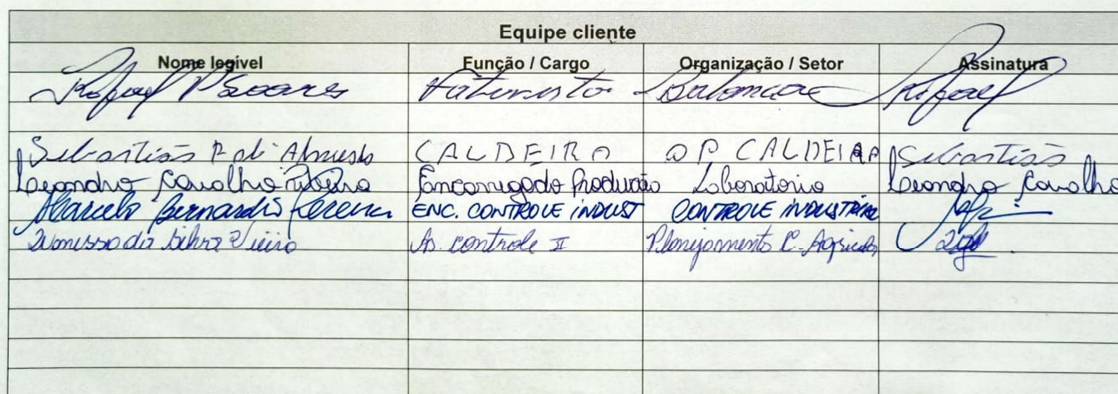 Equipe cliente
Nome legível Função / Cargo Organização / Setor Assinatura
Rafael Soares Balancae Rafael
Sebastião P. de Almeida CALDEIRA OP CALDEIRA Sebastião
Leandro Carvalho Ribeiro Encarregado Produção Laboratorio Leandro Carvalho
Marcelo Bernardis Pereira ENC. CONTROLE INDUST CONTROLE INDUSTRIAL
da Silva Vieira As. controle II Planejamento C. Agricola